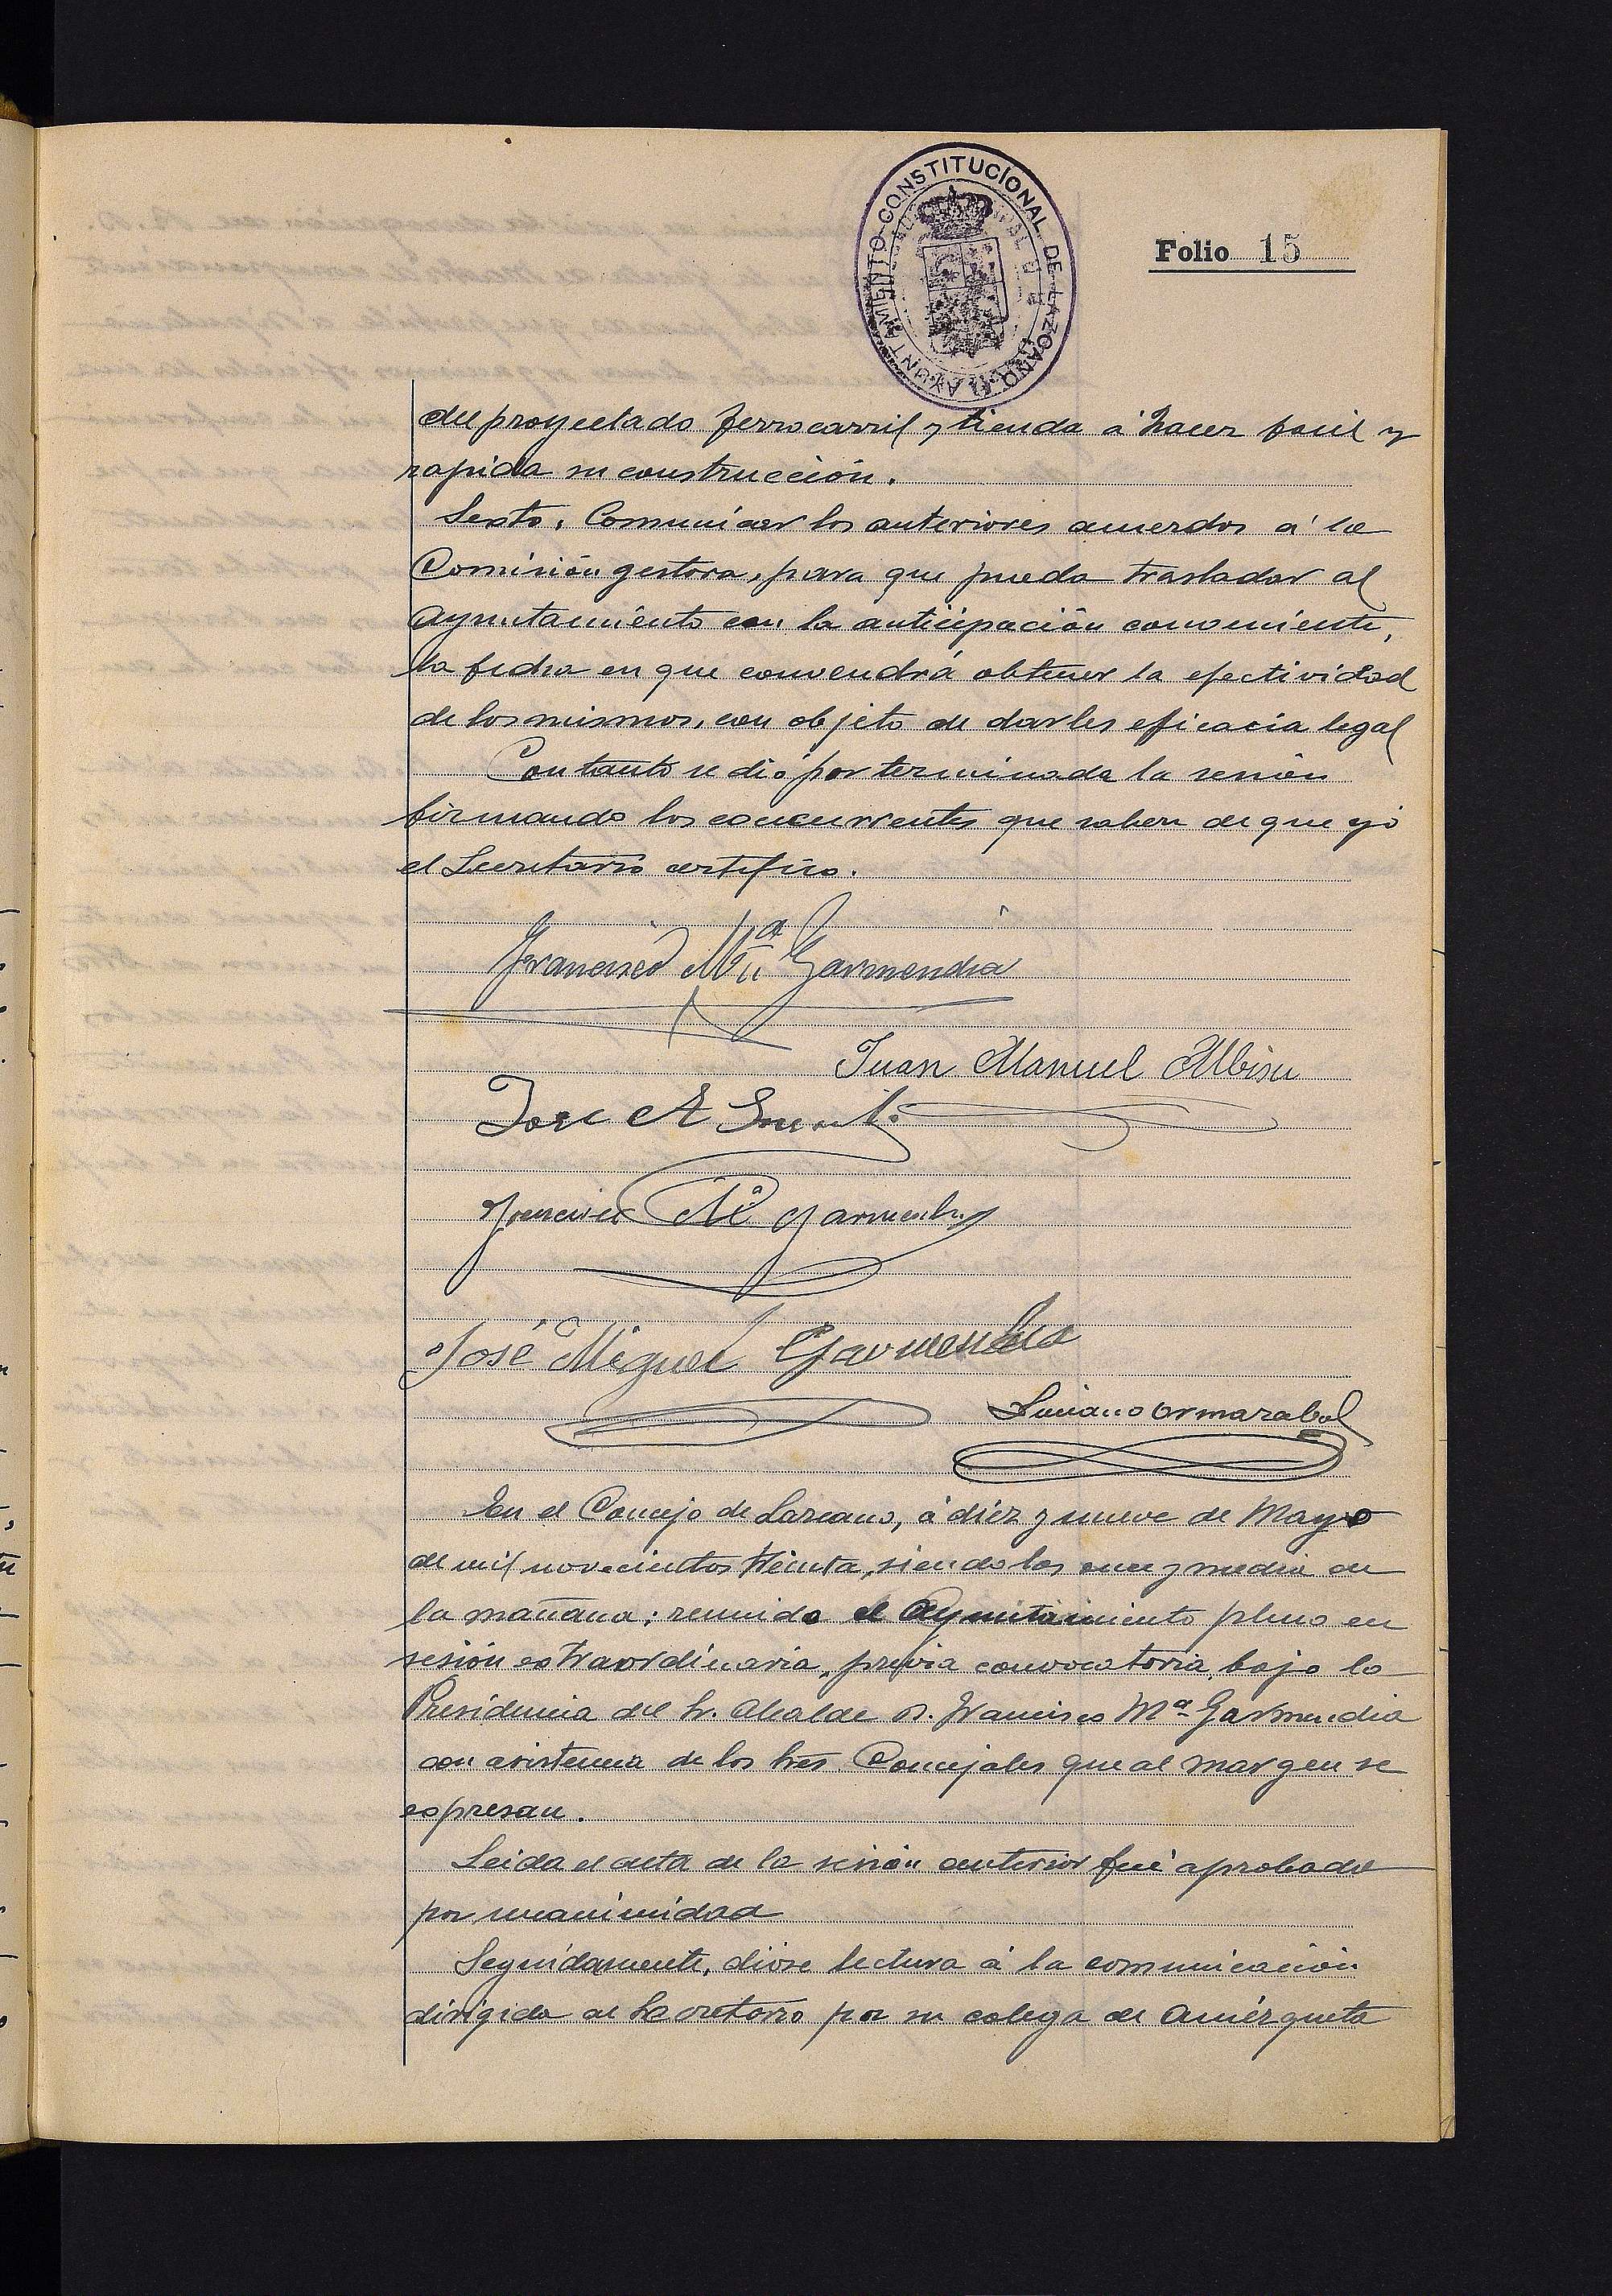 AYUNTAMIENTO CONSTITUCIONAL DE LAZCANO
Folio 15
del proyectado ferrocarril y tienda á hacer facil y
rapida su construcción.
Sexto. Comunicar los anteriores acuerdos á la
Comisión gestora, para que pueda trasladar al
Ayuntamiento con la anticipación conveniente,
la fecha en que convendrá obtener la efectividad
de los mismos, con objeto de darles eficacia legal
Con tanto se dió por terminada la sesión
firmando los concurrentes que saben de que yó
el Secretario certifico.
Francisco Mª Garmendia
Juan Manuel Albisu
Jose A
Francisco Mª Garmendia
José Miguel Garmendia
Luciano Ormazabal
En el Concejo de Lazcano, á diéz y nueve de Mayo
de mil novecientos treinta, siendo las once y media de
la mañana; reunido el Ayuntamiento pleno en
sesión extraordinaria, previa convocatoria, bajo la
Presidencia del Sr. Alcalde D. Francisco Mª Garmendia
con asistencia de los tres Concejales que al margen se
expresan.
Leida el acta de la sesión anterior fué aprobada
por unanimidad
Seguidamente, dióse lectura á la comunicación
dirigida al Secretario por su colega de Amézqueta